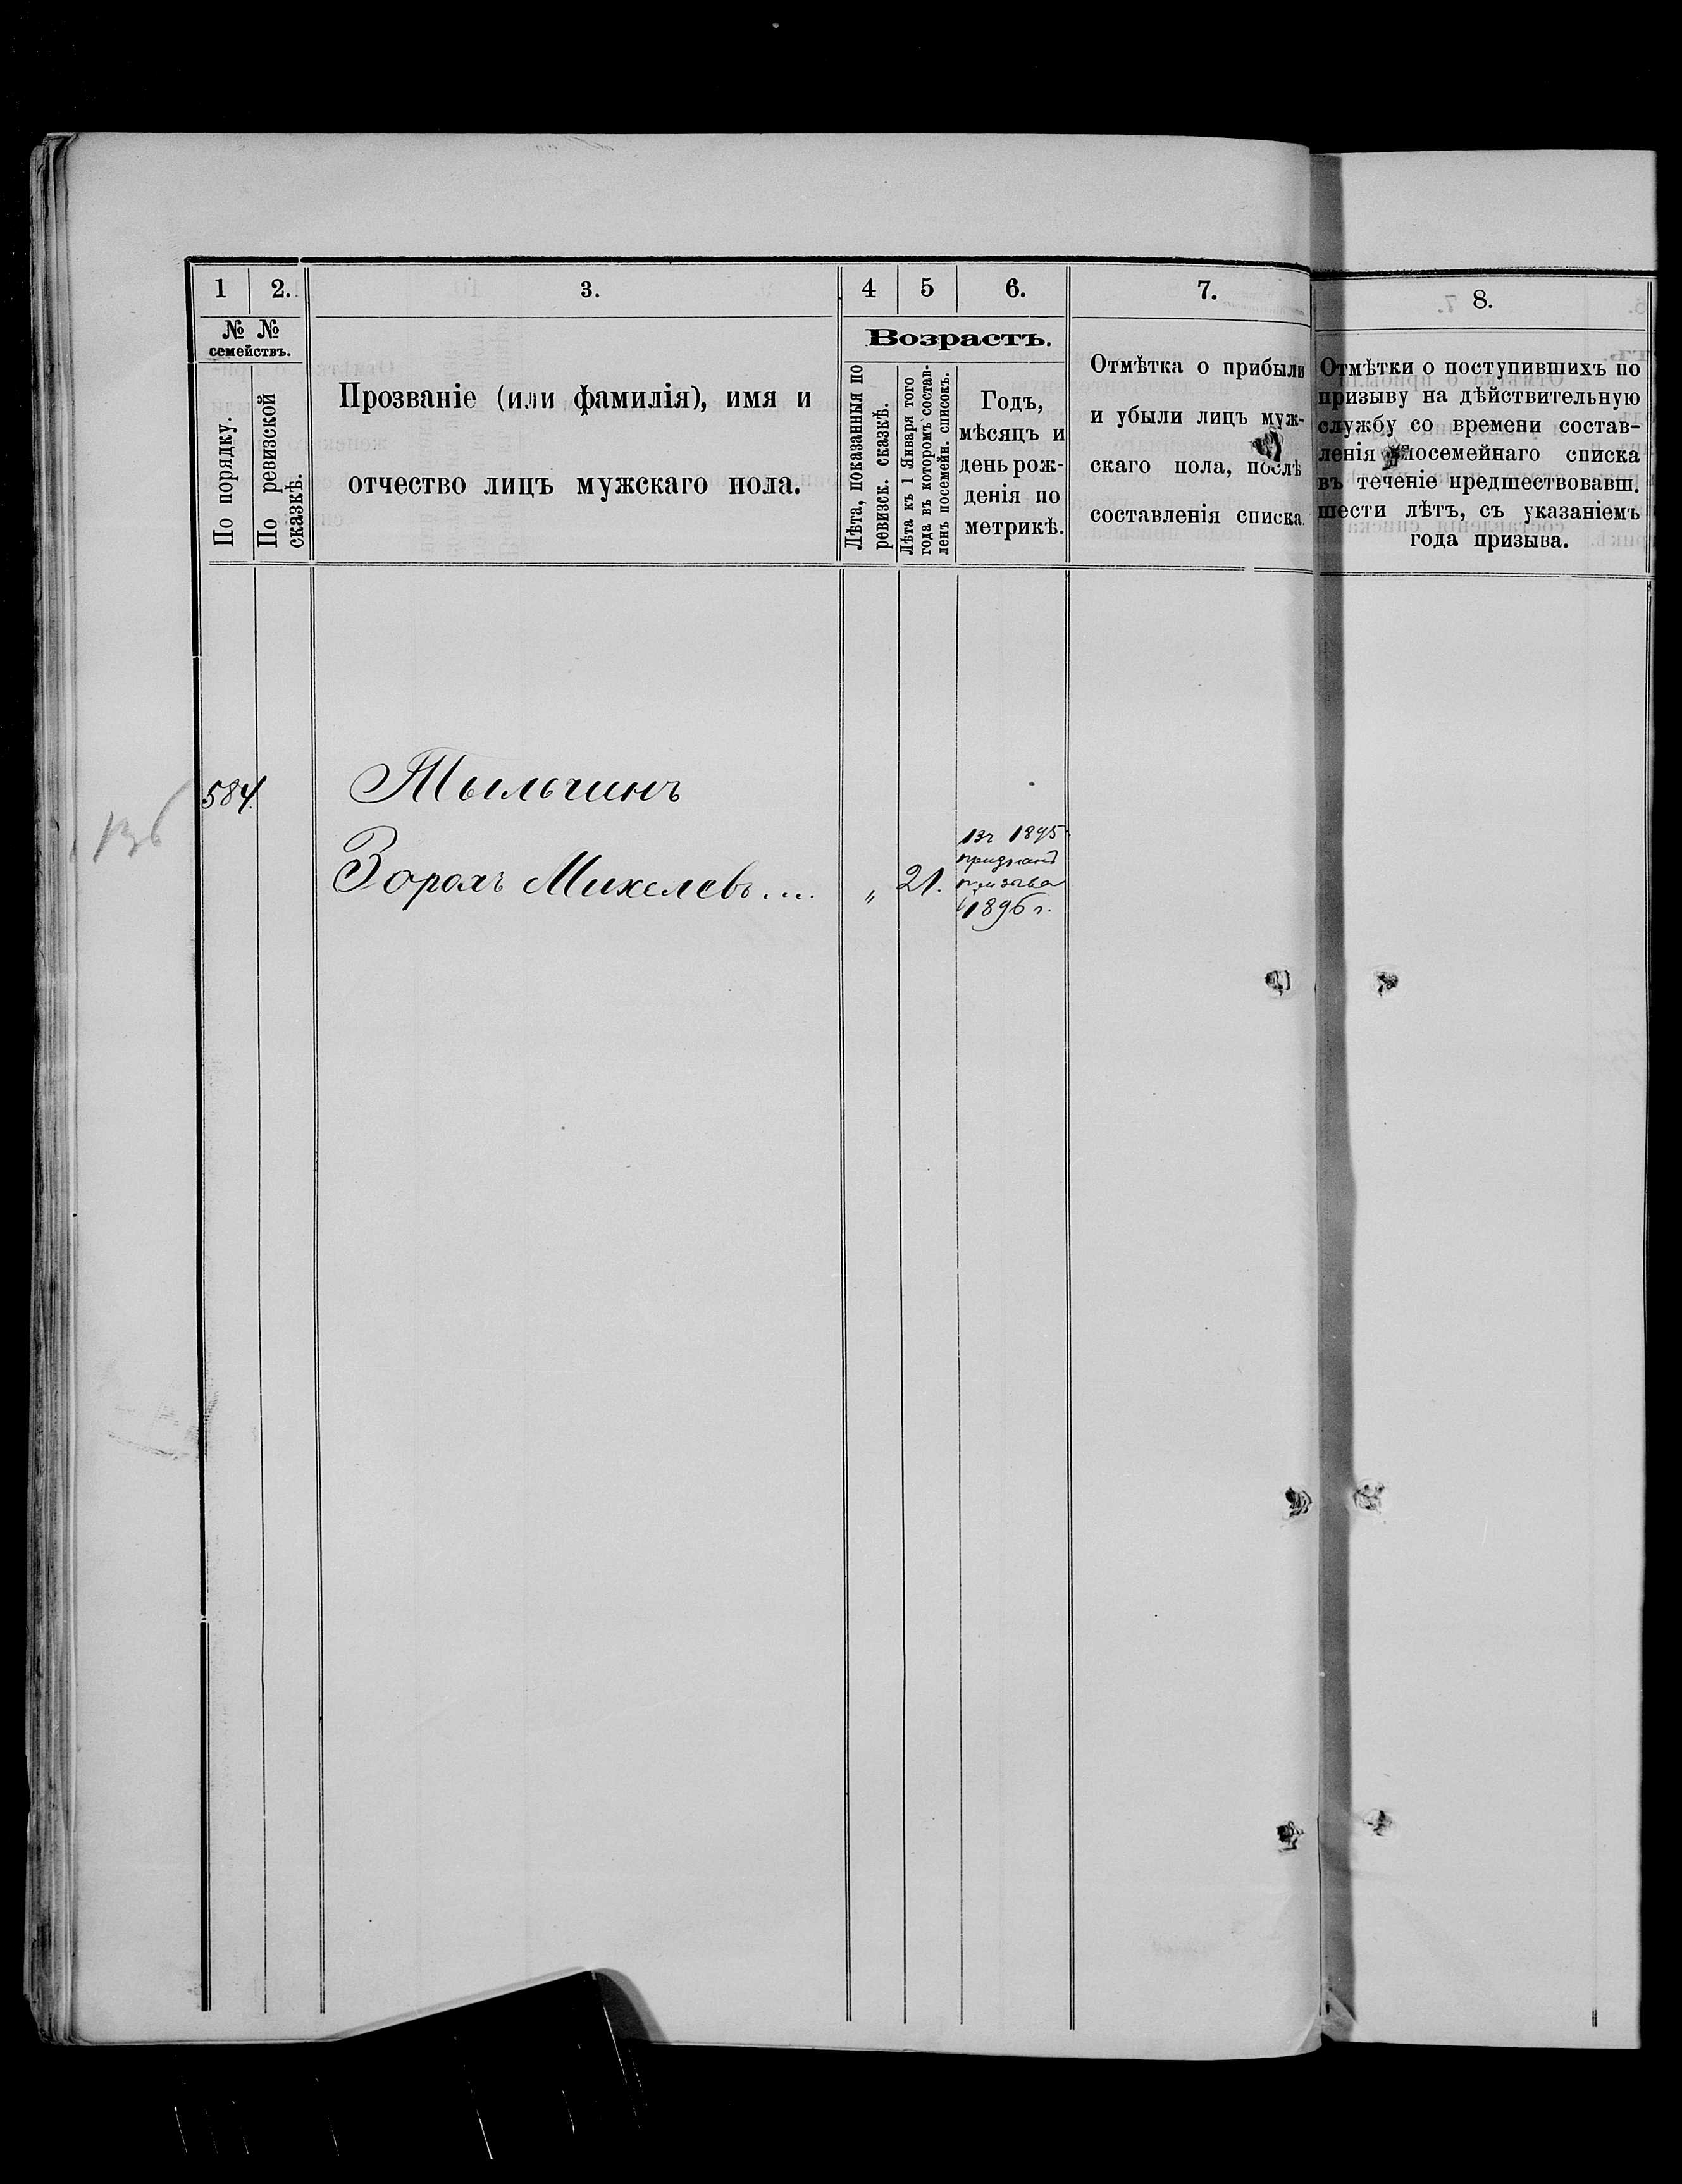 1
2.
3.
4
5
6.
7.
8.
№ №
семействъ.
По порядку.
По ревизской
сказкѣ.
Прозваніе (или фамилія), имя и
отчество лицъ мужскаго пола.
Возрастъ.
Лѣта, показанныя по
ревизск. сказкѣ.
Лѣта къ 1 Января того
года въ которомъ состав-
ленъ посемейн. списокъ.
Годъ,
мѣсяцъ и
день рож-
денія по
метрикѣ.
Отмѣтка о прибыли
и убыли лицъ муж-
скаго пола, послѣ
составленія списка.
Отмѣтки о поступившихъ по
призыву на дѣйствительную
службу со времени состав-
ленія посемейнаго списка
въ теченіе предшествовавш.
шести лѣтъ, съ указаніемъ
года призыва.
584.
Тыльчинъ
136
Зорохъ Михелевъ....
„
21.
1895
призыва
1896 г.